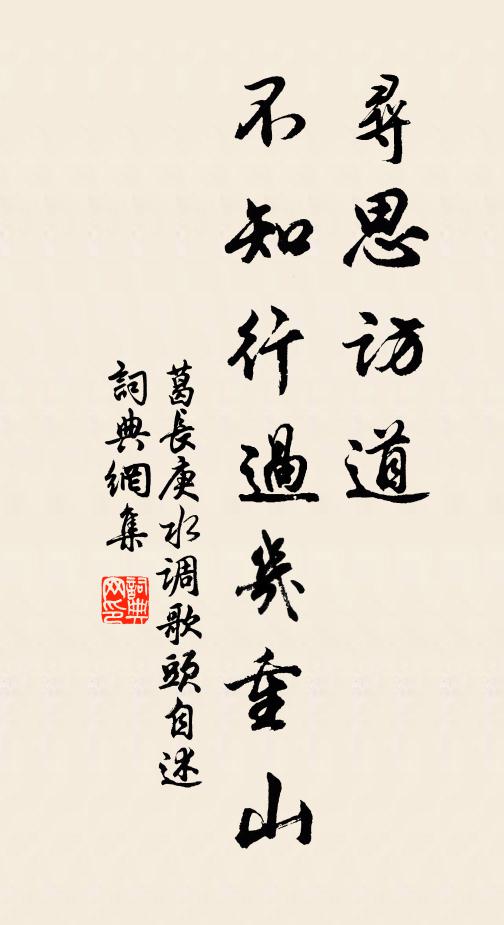 尋思訪道
不知行過幾重山
葛長庚水調歌頭自述
詞典網集
詞典网印